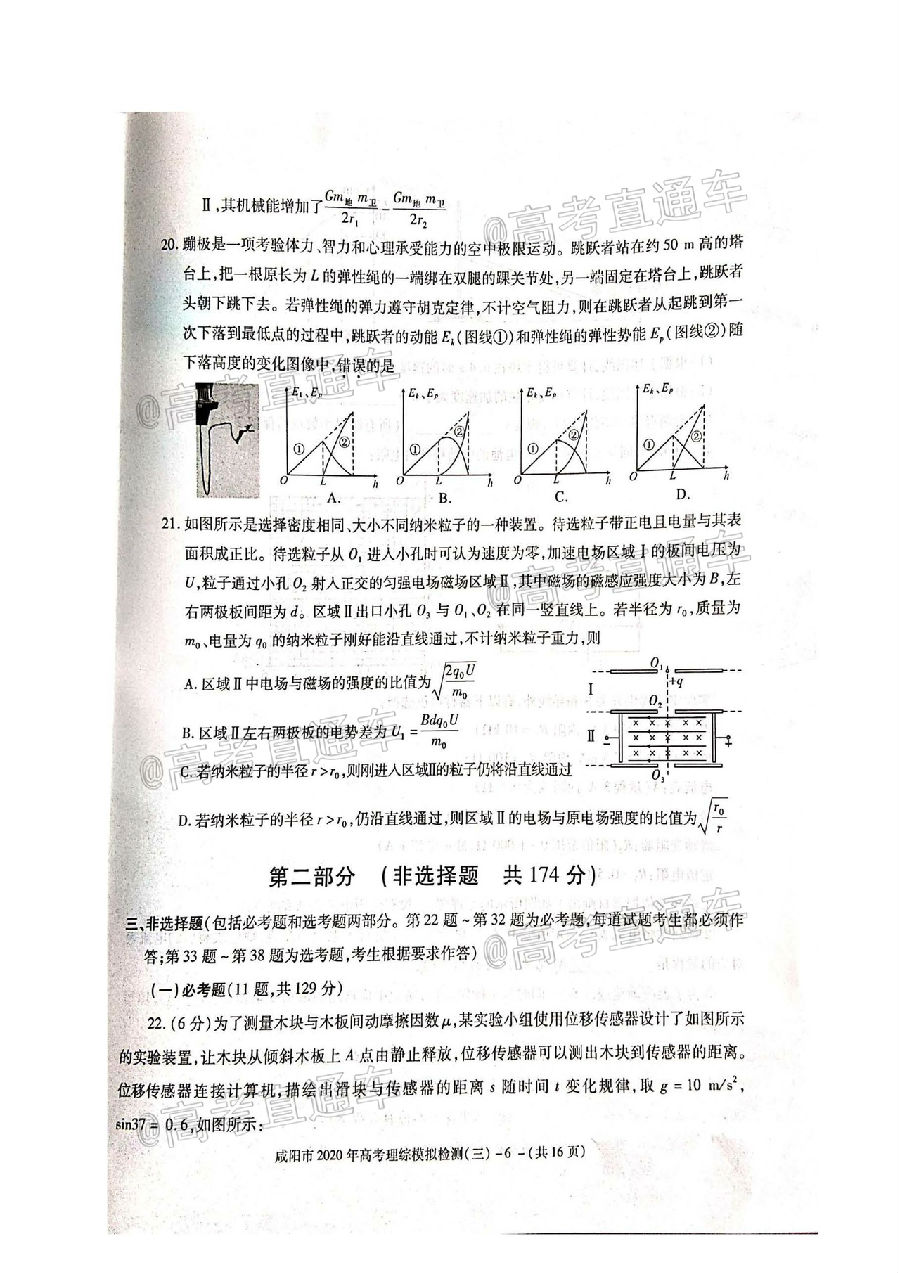 Ⅱ,其机械能增加了Gm地 m卫/2r₁ - Gm地 m卫/2r₂
20. 蹦极是一项考验体力、智力和心理承受能力的空中极限运动。跳跃者站在约 50 m 高的塔
台上,把一根原长为 L 的弹性绳的一端绑在双腿的踝关节处,另一端固定在塔台上,跳跃者
头朝下跳下去。若弹性绳的弹力遵守胡克定律,不计空气阻力,则在跳跃者从起跳到第一
次下落到最低点的过程中,跳跃者的动能 Eₖ(图线①)和弹性绳的弹性势能 Eₚ(图线②)随
下落高度的变化图像中,错误的是
Eₖ、Eₚ ① ② O L h A.
Eₖ、Eₚ ① ② O L h B.
Eₖ、Eₚ ① ② O L h C.
Eₖ、Eₚ ① ② O L h D.
21. 如图所示是选择密度相同、大小不同纳米粒子的一种装置。待选粒子带正电且电量与其表
面积成正比。待选粒子从 O₁ 进入小孔时可认为速度为零,加速电场区域Ⅰ的板间电压为
U,粒子通过小孔 O₂ 射入正交的匀强电场磁场区域Ⅱ,其中磁场的磁感应强度大小为 B,左
右两极板间距为 d。区域Ⅱ出口小孔 O₃ 与 O₁、O₂ 在同一竖直线上。若半径为 r₀,质量为
m₀、电量为 q₀ 的纳米粒子刚好能沿直线通过,不计纳米粒子重力,则
A. 区域Ⅱ中电场与磁场的强度的比值为√(2q₀U/m₀)
B. 区域Ⅱ左右两极板的电势差为 U₁ = Bdq₀U/m₀
C. 若纳米粒子的半径 r>r₀,则刚进入区域Ⅱ的粒子仍将沿直线通过
D. 若纳米粒子的半径 r>r₀,仍沿直线通过,则区域Ⅱ的电场与原电场强度的比值为√(r₀/r)
O₁ +q Ⅰ O₂ Ⅱ O₃
第二部分 (非选择题 共 174 分)
三、非选择题(包括必考题和选考题两部分。第 22 题~第 32 题为必考题,每道试题考生都必须作
答;第 33 题~第 38 题为选考题,考生根据要求作答)
(一)必考题(11 题,共 129 分)
22. (6 分)为了测量木块与木板间动摩擦因数 μ,某实验小组使用位移传感器设计了如图所示
的实验装置,让木块从倾斜木板上 A 点由静止释放,位移传感器可以测出木块到传感器的距离。
位移传感器连接计算机,描绘出滑块与传感器的距离 s 随时间 t 变化规律,取 g=10 m/s²,
sin37=0.6,如图所示:
咸阳市 2020 年高考理综模拟检测(三)-6-(共 16 页)
@高考直通车
@高考直通车
@高考直通车
@高考直通车
@高考直通车
@高考直通车